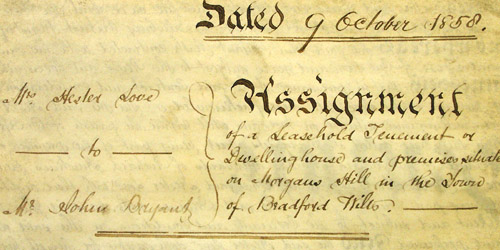 Dated 9 October 1858.
Mrs. Hester Love
to
Mr. John Bryant
Assignment
of a Leasehold Tenement or
Dwellinghouse and premises situate
on Morgans Hill in the Town
of Bradford Wilts.